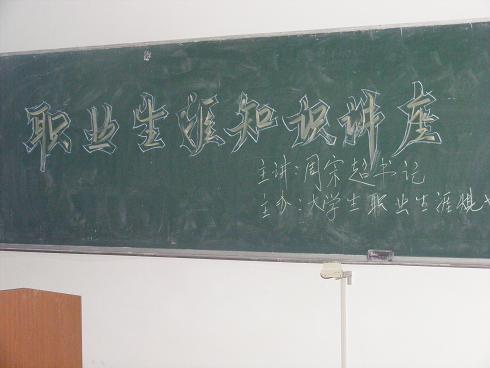 职业生涯知识讲座
主讲:周宗超书记
主办:大学生职业生涯规